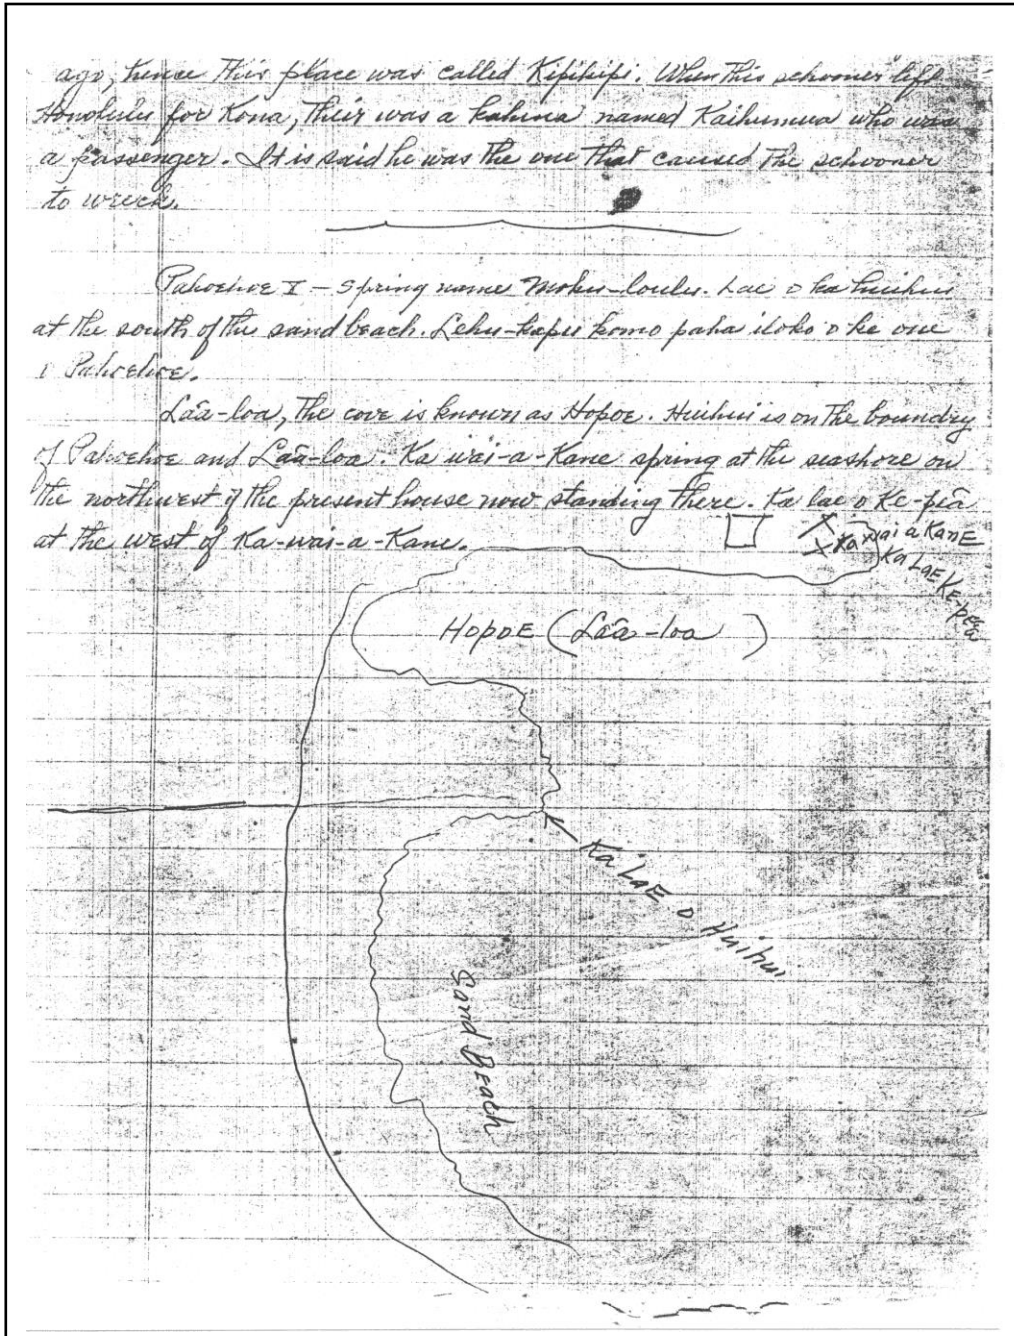 ago, hence this place was called Kipihipi. When this schooner left
Honolulu for Kona, their was a kahuna named Kaihumua who was
a passenger. It is said he was the one that caused the schooner
to wreck.
Pahoehoe I – Spring name Moku-loulu. Lae o ka huihui
at the south of the sand beach. Lehu-kapu komo paha iloko o ke one
i Pahoehoe.
Lãa-loa, the cove is known as Hopoe. Huihui is on the boundry
of Pahoehoe and Lãa-loa. Ka wai-a-Kane spring at the seashore on
the northwest of the present house now standing there. Ka lae o Ke-pea
at the west of Ka-wai-a-Kane.
Ka wai a KanE
Ka LaE KE-pea
HOPOE (Lãa-loa )
Ka LaE o Huihui
Sand BEach